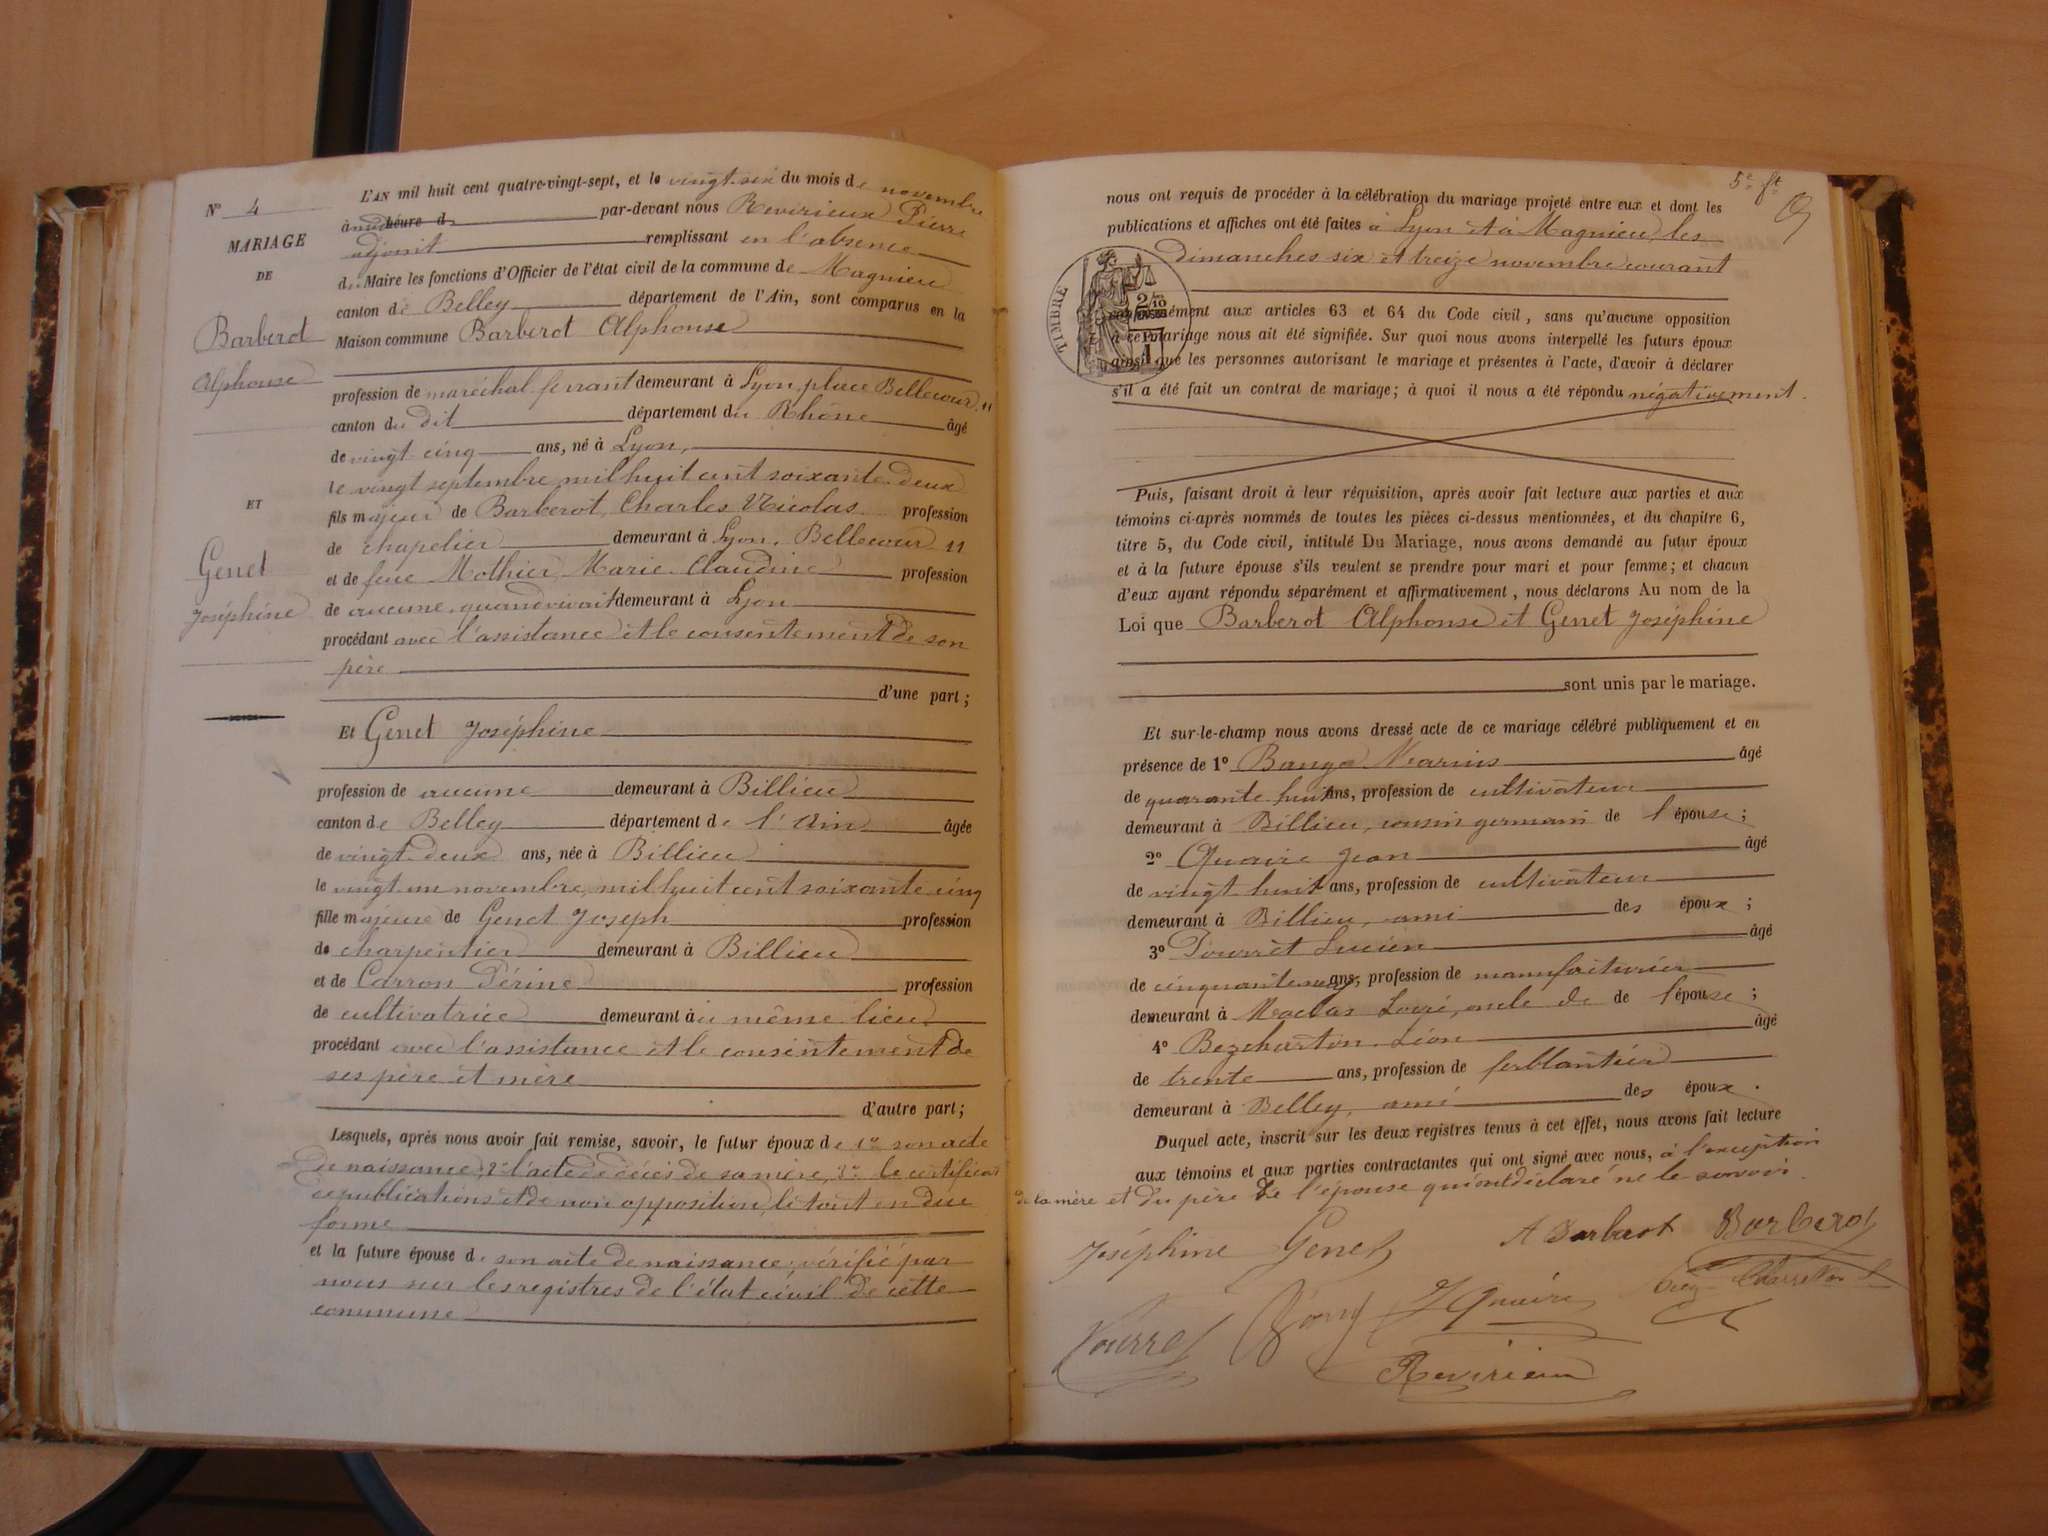 N° 4
MARIAGE
DE
Barberot
Alphonse
ET
Genet
Joséphine
L'AN mil huit cent quatre-vingt-sept, et le vingt-six du mois de novembre
à midi heure d par-devant nous Revirieux Pierre
adjoint remplissant en l'absence
du Maire les fonctions d'Officier de l'état civil de la commune de Magnieu
canton de Belley département de l'Ain, sont comparus en la
Maison commune Barberot Alphonse
profession de maréchal ferrant demeurant à Lyon, place Bellecour 11
canton du dit département du Rhône âgé
de vingt cinq ans, né à Lyon,
le vingt septembre mil huit cent soixante deux
fils majeur de Barberot, Charles Nicolas profession
de chapelier demeurant à Lyon, Bellecour 11
et de feue Mothier, Marie Claudine profession
de aucune, quand vivait demeurant à Lyon
procédant avec l'assistance et le consentement de son
père
d'une part ;
Et Genet Joséphine
profession de aucune demeurant à Billieu
canton de Belley département de l'Ain âgée
de vingt-deux ans, née à Billieu
le vingt un novembre, mil huit cent soixante cinq
fille majeure de Genet Joseph profession
de charpentier demeurant à Billieu
et de Carron Périne profession
de cultivatrice demeurant à au même lieu
procédant avec l'assistance et le consentement de
ses père et mère
d'autre part ;
Lesquels, après nous avoir fait remise, savoir, le futur époux de 1° son acte
de naissance, 2° l'acte de décès de sa mère, 3° le certificat
de publications et de non opposition, le tout en due
forme
et la future épouse de son acte de naissance, vérifié par
nous sur les registres de l'état civil de cette
commune
5e ft
nous ont requis de procéder à la célébration du mariage projeté entre eux et dont les
publications et affiches ont été faites à Lyon et à Magnieu, les
dimanches six et treize novembre courant
TIMBRE
2/10
conformément aux articles 63 et 64 du Code civil, sans qu'aucune opposition
à ce mariage nous ait été signifiée. Sur quoi nous avons interpellé les futurs époux
ainsi que les personnes autorisant le mariage et présentes à l'acte, d'avoir à déclarer
s'il a été fait un contrat de mariage; à quoi il nous a été répondu négativement.
Puis, faisant droit à leur réquisition, après avoir fait lecture aux parties et aux
témoins ci-après nommés de toutes les pièces ci-dessus mentionnées, et du chapitre 6,
titre 5, du Code civil, intitulé Du Mariage, nous avons demandé au futur époux
et à la future épouse s'ils veulent se prendre pour mari et pour femme; et chacun
d'eux ayant répondu séparément et affirmativement, nous déclarons Au nom de la
Loi que Barberot Alphonse et Genet Joséphine
sont unis par le mariage.
Et sur-le-champ nous avons dressé acte de ce mariage célébré publiquement et en
présence de 1° Marius âgé
de quarante huit ans, profession de cultivateur
demeurant à Billieu, cousin germain de l'épouse ;
2° Quaire Jean âgé
de vingt huit ans, profession de cultivateur
demeurant à Billieu, ami des époux ;
3° Pourret Lucien âgé
de cinquante neuf ans, profession de manufacturier
demeurant à oncle de de l'épouse ;
4° Bezcharton Léon âgé
de trente ans, profession de ferblantier
demeurant à Belley, ami des époux.
Duquel acte, inscrit sur les deux registres tenus à cet effet, nous avons fait lecture
aux témoins et aux parties contractantes qui ont signé avec nous, à l'exception
de la mère et du père de l'épouse qui ont déclaré ne le savoir.
Joséphine Genet A Barberot Barberot
Pourret J Quaire
Revirieux